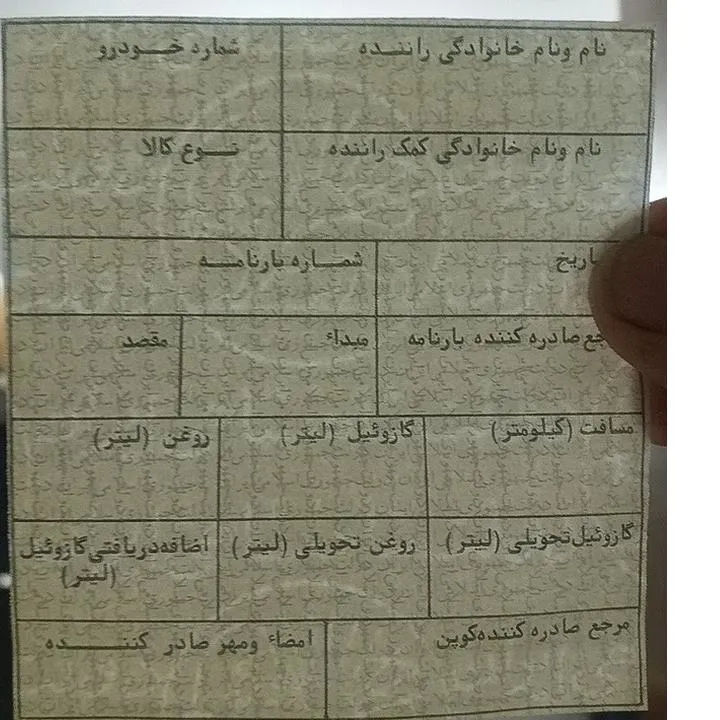 نام ونام خانوادگی راننده
شماره خودرو
نام ونام خانوادگی کمک راننده
نوع کالا
شماره بارنامه
صادره کننده بارنامه
مبداء
مقصد
مسافت (کیلومتر)
گازوئیل (لیتر)
روغن (لیتر)
گازوئیل تحویلی (لیتر)
روغن تحویلی (لیتر)
اضافه دریافتی گازوئیل
(لیتر)
مرجع صادره کننده کوپن
امضاء ومهر صادر کننده